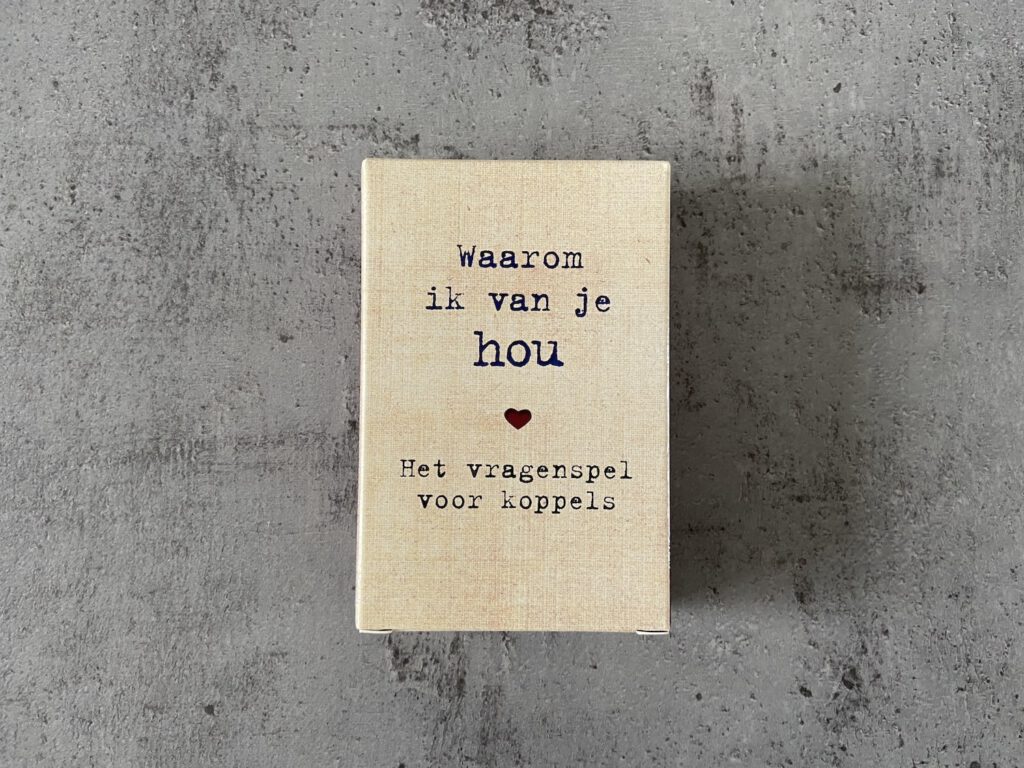 Waarom
ik van je
hou
Het vragenspel
voor koppels